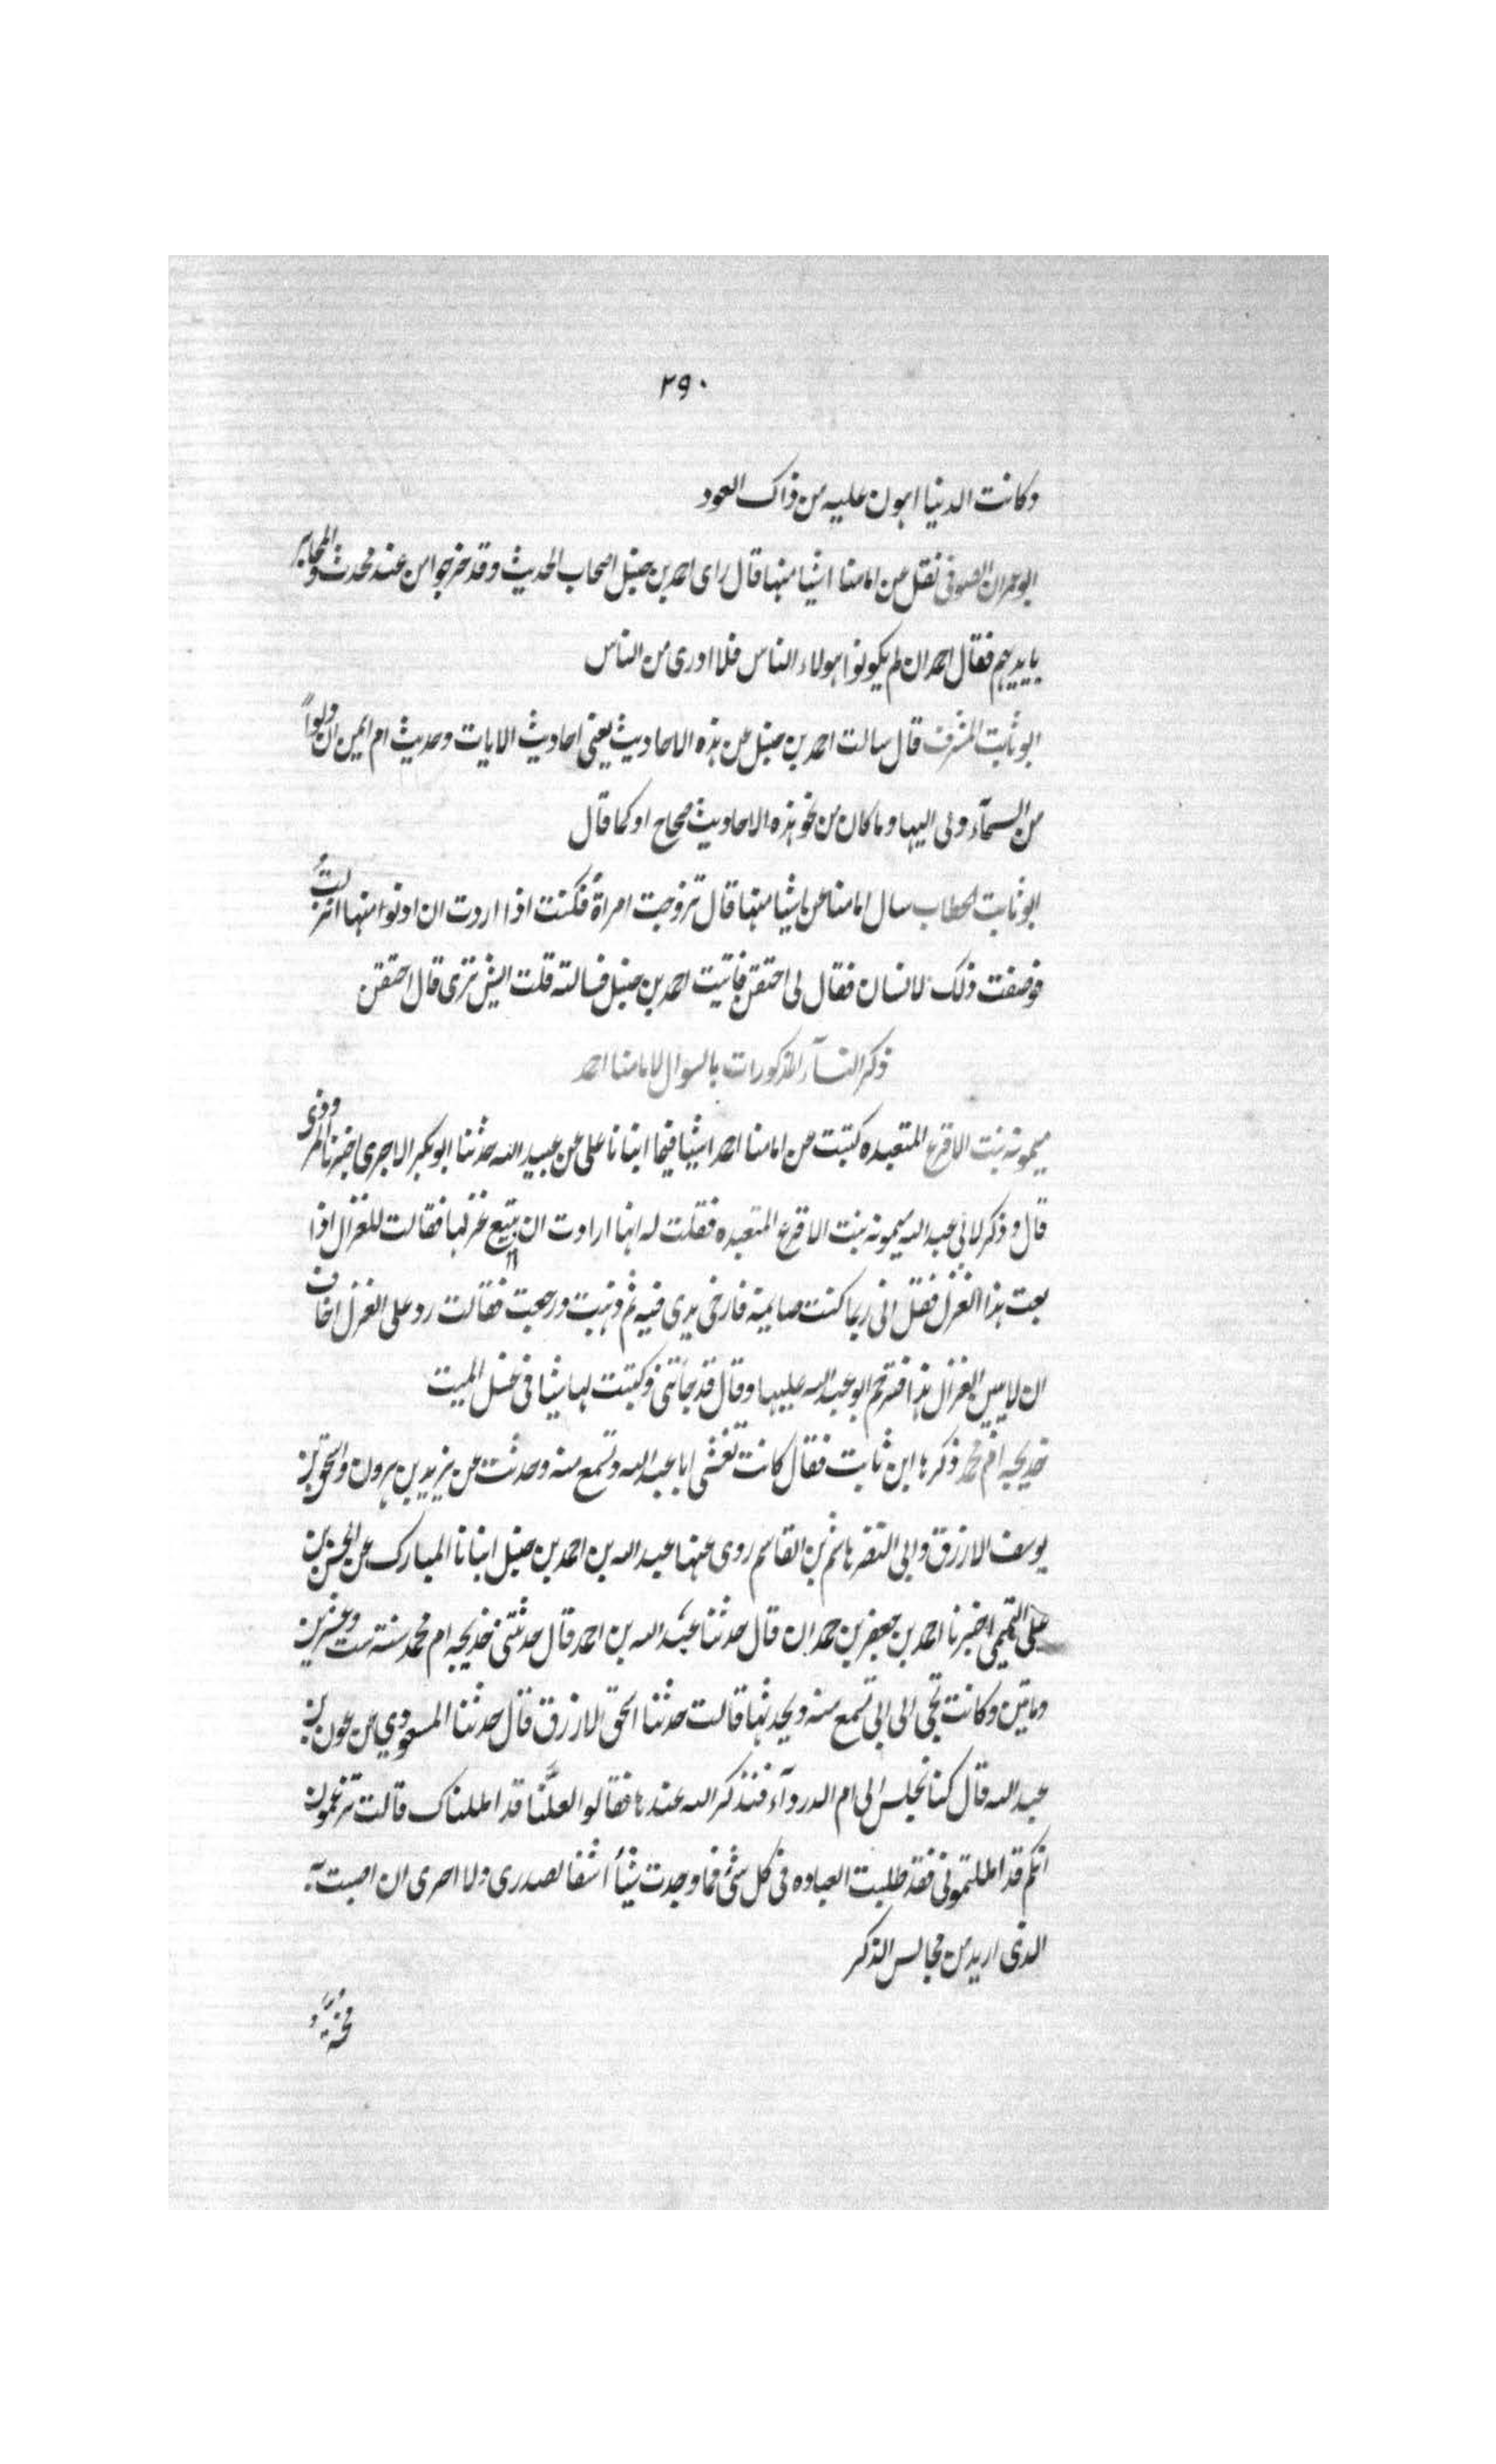 ٢٩٠
وكانت الدنيا اهون عليه من ذاك العود
ابو عمران الصوفى نقل عن امامنا اشيا منها قال راى احمد بن حنبل اصحاب الحديث وقد خرجوا من عند محدث والمحابر
بايديهم فقال احمد ان لم يكونوا هولاء الناس فلا ادرى من الناس
ابو ثابت المشرف قال سالت احمد بن حنبل عن هذه الاحاديث يعنى احاديث الايات وحديث ام ايمن ان دلواً
من السمآء دلى اليها وما كان من نحو هذه الاحاديث صحاح او كما قال
ابو ثابت الحطاب سال امامنا عن اشيا منها قال تزوجت امراة فكنت اذا اردت ان ادنوا منها انزلت
فوصفت ذلك لانسان فقال لى احتقن فاتيت احمد بن حنبل فسالته قلت ايش ترى قال احتقن
ذكر النسآء المذكورات بالسوال لامامنا احمد
ميمونه بنت الاقرع المتعبده كتبت عن امامنا احمد اشيا فيما انبانا على عن عبيد الله حدثنا ابو بكر الاجرى اخبرنا المروذى
قال وذكر لابى عبد الله ميمونه بنت الاقرع المتعبده فقلت له انها ارادت ان تبيع غزلها فقالت للغزال اذا
بعت هذا الغزل فقل انى ربما كنت صايمة فارخى يدى فيه ثم ذهبت ورجعت فقالت رد على الغزل اخاف
ان لا يبين الغزال هذا فترحم ابو عبد الله عليها وقال قد جاتنى وكتبت لها شيا فى غسل الميت
خديجه ام محمد ذكرها ابن ثابت فقال كانت تغشى ابا عبد الله وتسمع منه وحدثت عن يزيد بن هرون واسحق بن
يوسف الازرق وابى النضر هاشم بن القاسم روى عنها عبد الله بن احمد بن حنبل انبانا المبارك عن الحسن بن
على التميمى اخبرنا احمد بن جعفر بن حمدان قال حدثنا عبد الله بن احمد قال حدثتنى خديجه ام محمد سنة ست وعشرين
وماتين وكانت تجى الى ابى تسمع منه ويحدثها قالت حدثنا اسحق الازرق قال حدثنا المسعودي عن عون بن
عبد الله قال كنا نجلس الى ام الدردآء فنذكر الله عندها فقالوا لعلّنا قد امللناك قالت تزعمون
انكم قد امللتمونى فقد طلبت العباده فى كل شئ فما وجدت شيأ اشفا لصدرى ولا احرى ان اصبت به
الذى اريد من مجالس الذكر